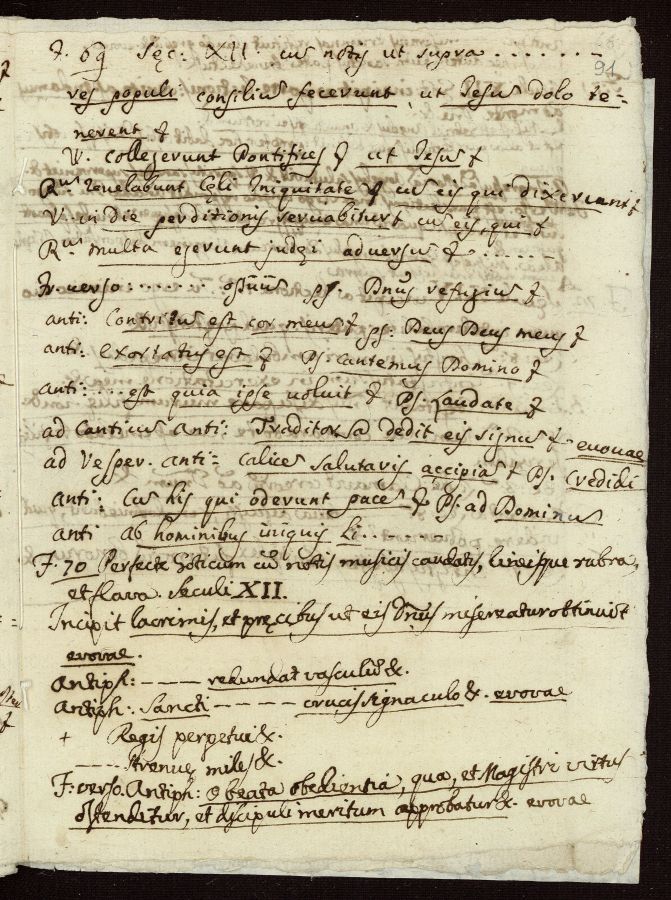 91
F. 69 Sęc: XII. cū notis ut supra . . . . . . .
res populi consiliū fecerunt, ut Jesus dolo te=
nerent &
W. collegerunt Pontifices & ut Jesus &
R.m revelabunt Cęli Iniquitate & cū eis qui dixerunt &
V. in die perditionis servabitur & cū eis, qui &
R.m multa egerunt judęi adversū & . . . . . .
Fr. verso: . . . . . ps. Dnūs refugiū &
anti: Contritus est cor meus & ps: Deus Deus meus &
anti: Exortatus est & Ps cantemus Domino &
anti: . . . est quia ipse voluit & Ps. Laudate &
ad Canticū Anti: Traditor dedit eis signū & - evovae
ad Vesper. anti: calicē salutaris accipiā & Ps. Credidi
anti: Cū his qui oderunt pacē & Ps. ad Dominū
anti ab hominibus iniquis Li. . . . .
F. 70 Perfecte Goticum cū notis musicis caudatis, lineisque rubra,
et flava. Seculi XII.
Incipit lacrimis, et pręcibus ut eis Dnūs misereatur obtinuit
evovae.
Antiph: - - - - redundat vasculū &.
Antiph: Sancti - - - - - crucis signaculo &. evovae
+ Regis perpetui &.
- - - - strenuę miles &.
F. verso. Antiph: O beata obedientia, qua, et Magistri virtus
ostenditur, et discipuli meritum approbatur &. evovae